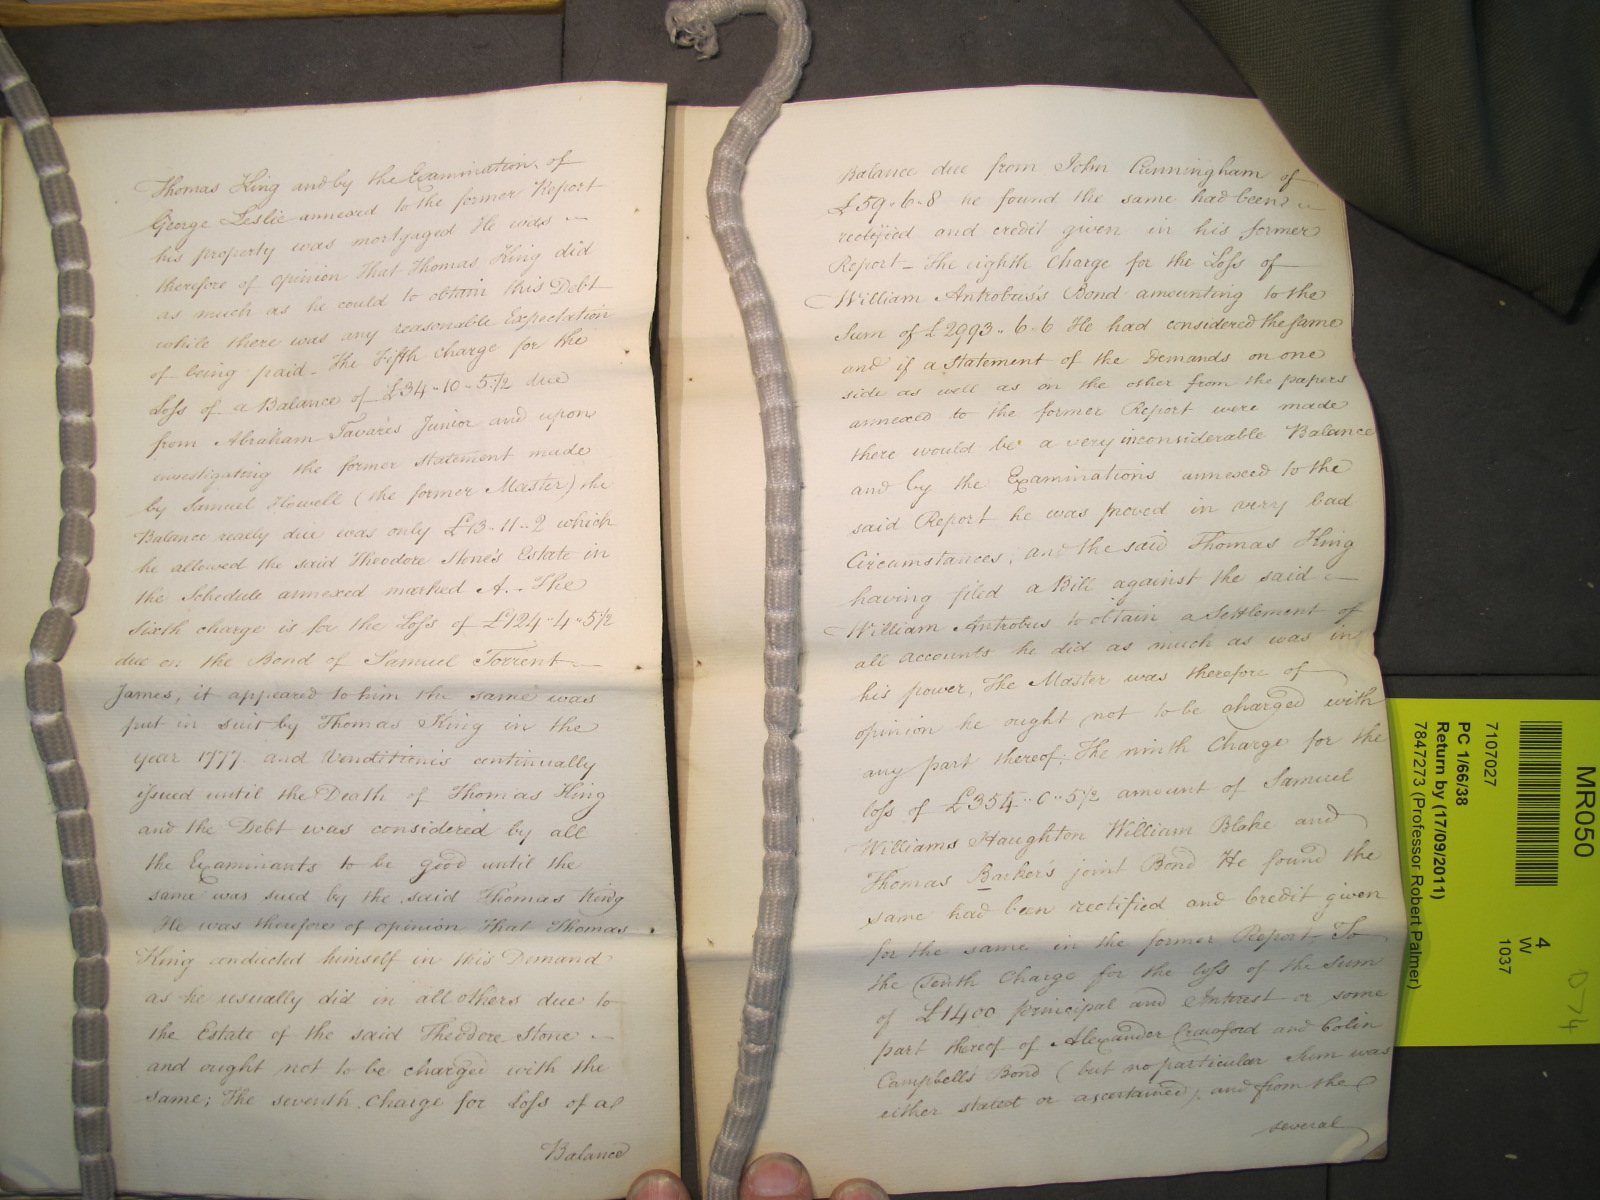 Thomas King and by the Examination of
George Leslie annexed to the former Report
his property was mortgaged He was
therefore of opinion That Thomas King did
as much as he could to obtain this Debt
while there was any reasonable Expectation
of being paid - The Fifth charge for the
Loss of a Balance of £34-10-5½ due
from Abraham Tavares Junior and upon
investigating the former statement made
by Samuel Howell (the former Master) the
Balance really due was only £13-11-2 which
he allowed the said Theodore Stone's Estate in
the Schedule annexed marked A. - The
sixth charge is for the Loss of £124-4-5½
due on the Bond of Samuel Torrent
James, it appeared to him the same was
put in suit by Thomas King in the
year 1777 and Venditionis continually
issued until the Death of Thomas King
and the Debt was considered by all
the Examinants to be good until the
same was sued by the said Thomas King
He was therefore of opinion That Thomas
King conducted himself in this Demand
as he usually did in all others due to
the Estate of the said Theodore Stone
and ought not to be charged with the
same; The seventh Charge for Loss of a
Balance
Balance due from John Cunningham of
£59-6-8 he found the same had been
rectified and credit given in his former
Report - The eighth Charge for the Loss of
William Antrobus's Bond amounting to the
Sum of £2993-6-6 He had considered the same
and if a Statement of the Demands on one
side as well as on the other from the papers
annexed to the former Report were made
there would be a very inconsiderable Balance
and by the Examinations annexed to the
said Report he was proved in very bad
Circumstances, and the said Thomas King
having filed a Bill against the said
William Antrobus to obtain a Settlement of
all accounts he did as much as was in
his power, The Master was therefore of
opinion he ought not to be charged with
any part thereof; The ninth Charge for the
loss of £354-0-5½ amount of Samuel
Williams Haughton William Blake and
Thomas Barker's joint Bond He found the
same had been rectified and Credit given
for the same in the former Report - To
the Tenth Charge for the loss of the Sum
of £1400 principal and Interest or some
part thereof of Alexander Crawford and Colin
Campbell's Bond (but no particular Sum was
either stated or ascertained), and from the
several
MR050
7107027
4
W
1037
PC 1/66/38
Return by (17/09/2011)
7847273 (Professor Robert Palmer)